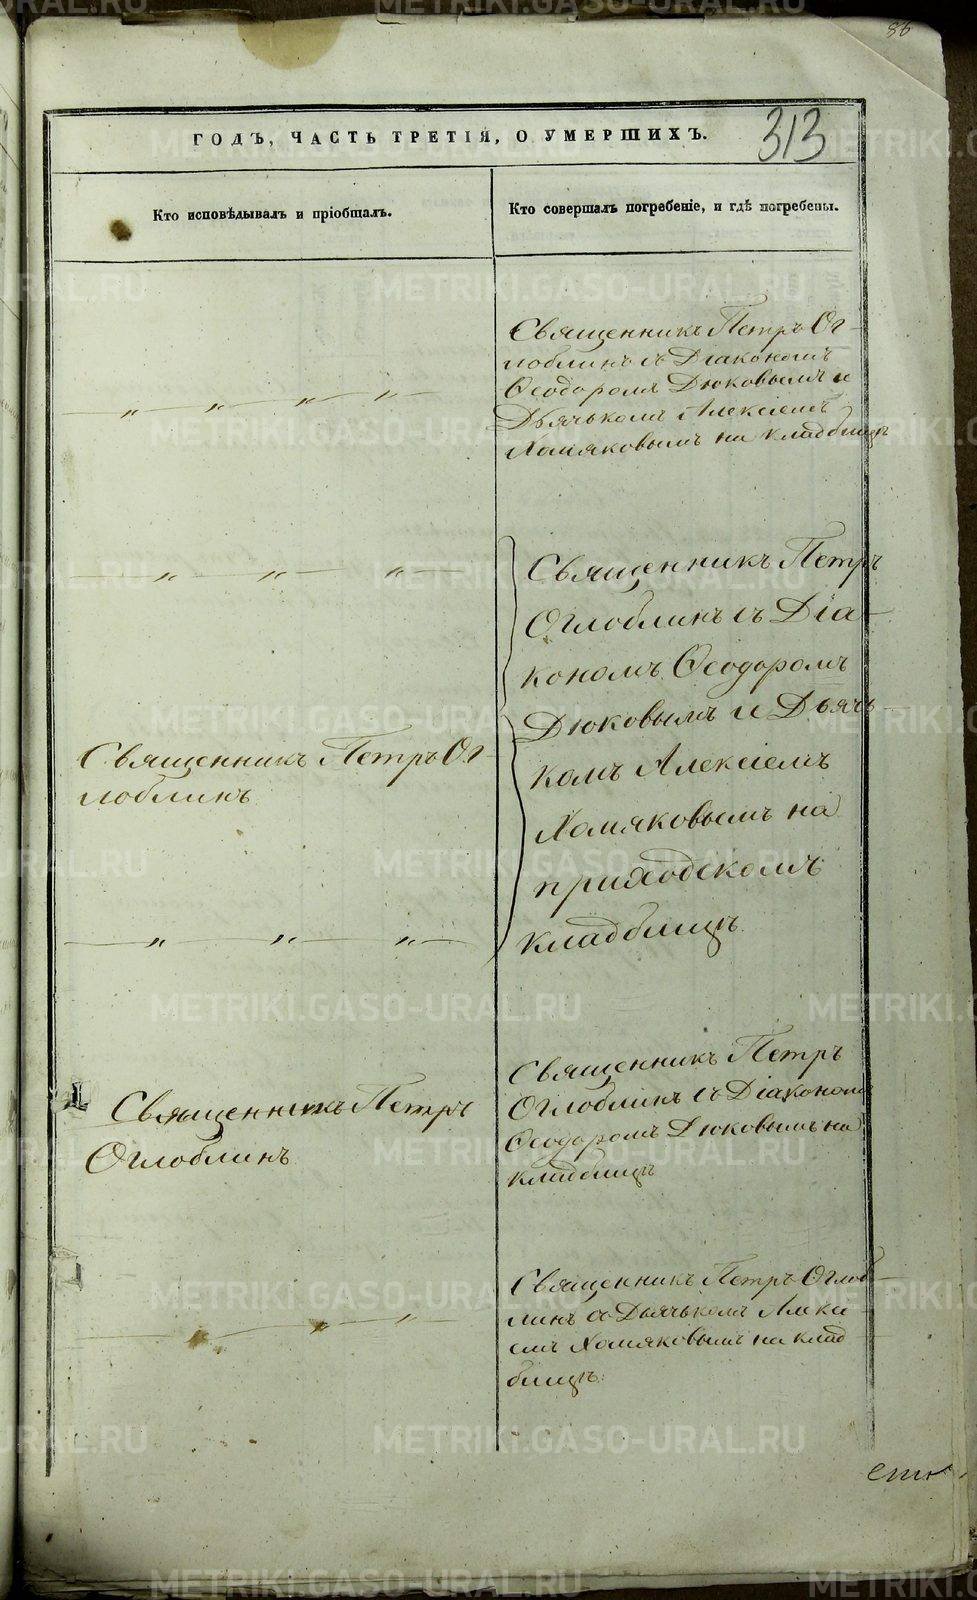 86
313
ГОДЪ, ЧАСТЬ ТРЕТІЯ, О УМЕРШИХЪ.
Кто исповѣдывалъ и пріобщалъ.
Кто совершалъ погребеніе, и гдѣ погребены.
Священникъ Петръ Ог-
лоблинъ съ Діакономъ
Ѳеодоромъ Дюковымъ и
Дьячькомъ Алексіемъ
Хомяковымъ на кладбищѣ
" " " "
" " "
Священникъ Петръ
Оглоблинъ съ Діа-
кономъ Ѳеодоромъ
Дюковымъ и Дьячь-
комъ Алексіемъ
Хомяковымъ на
приходскомъ
кладбищѣ
Священникъ Петръ Ог-
лоблинъ
" " "
Священникъ Петръ
Оглоблинъ
Священникъ Петръ
Оглоблинъ съ Діакономъ
Ѳеодоромъ Дюковымъ на
кладбищѣ
" " "
Священникъ Петръ Оглоб-
линъ съ Дьячькомъ Алексі-
емъ Хомяковымъ на клад
бищѣ.
METRIKI.GASO-URAL.RU